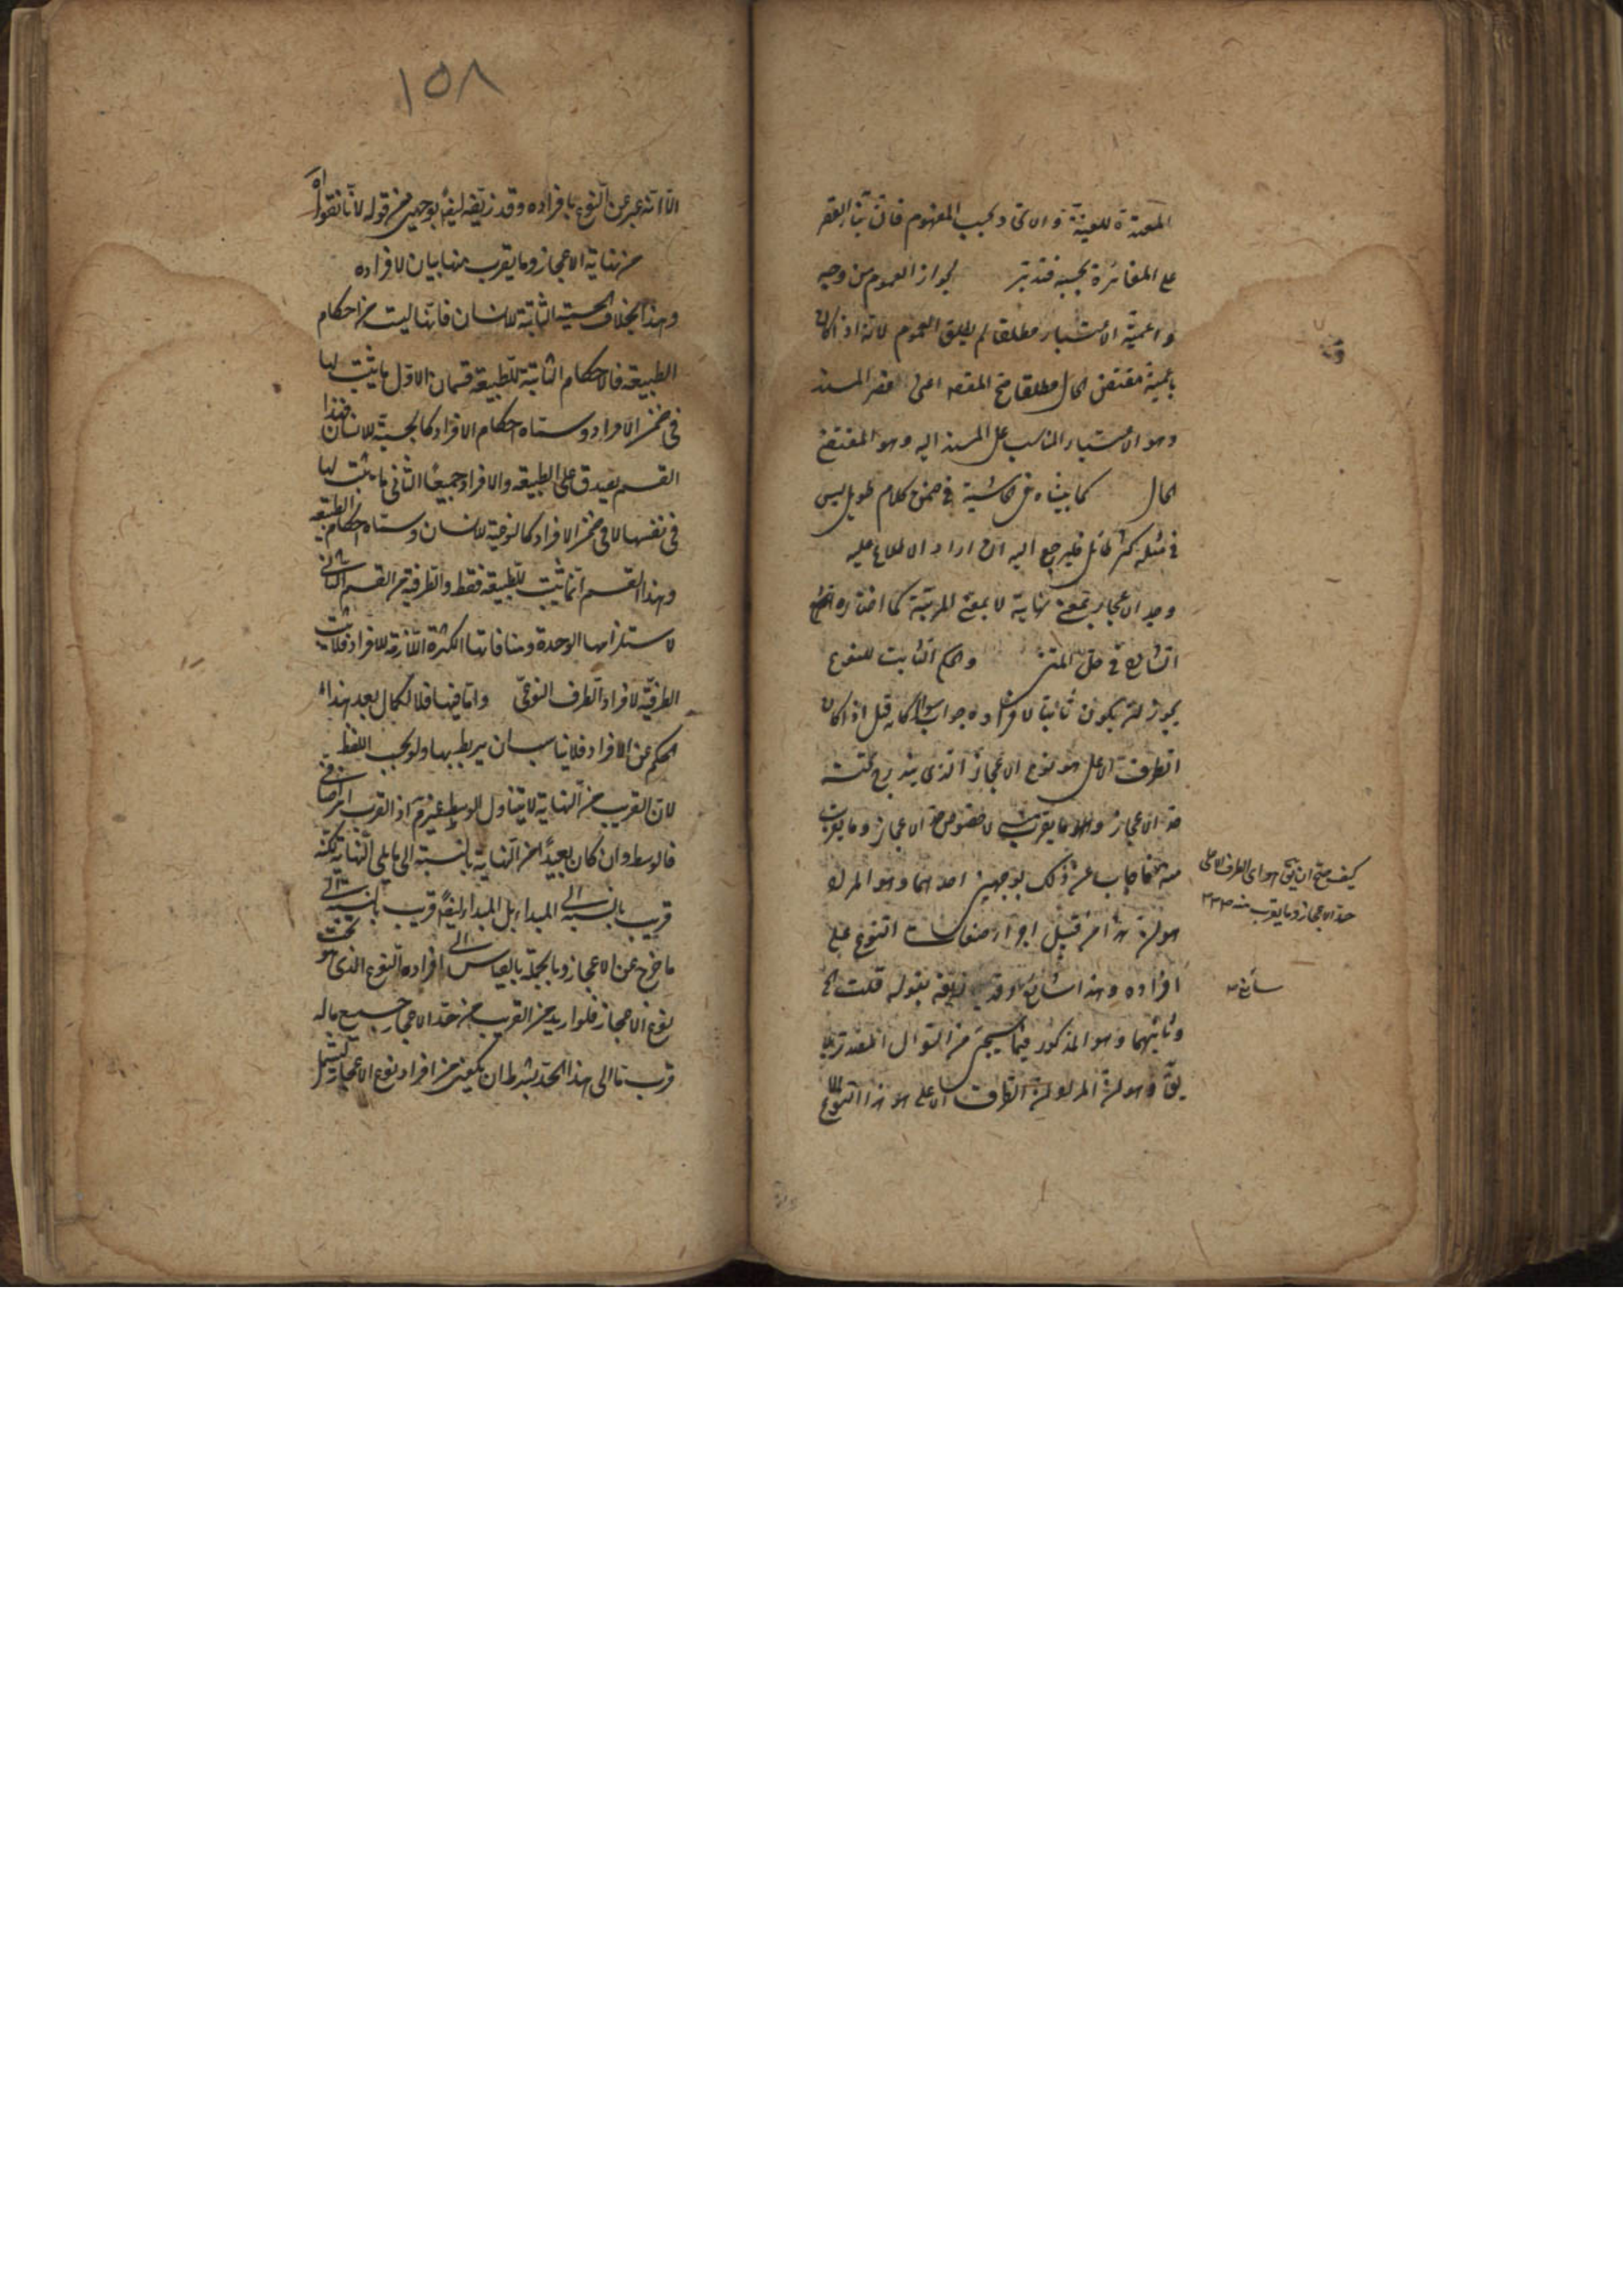 المفيدة للعينية والاتحاد بحسب المفهوم فان بناء القصر
على المغائرة بحسبه فتدبر لجواز العموم من وجه
واعمية الاعتبار مطلقا لم يطلق العموم لانه اذا كان
مقتضى الحال مطلقا المسند
وهو الاعتبار المناسب على المسند اليه وهو المقتضى
الحال كما بيناه فى الحاشية فى ضمن كلام طويل ليس
فى مثله كثير طائل فليرجع اليه ان اراد الاطلاع عليه
وحد الاعجاز بمعنى نهاية لا بمعنى المرتبة كما اختاره
الشارح فى حل المتن والحكم الثابت للنوع
يجوز ان يكون ثابتا لافراده جواب سؤال كانه قيل اذا كان
الطرف الاعلى هو نوع الاعجاز الذى يندرج تحته
حد الاعجاز وما يقرب منه لا خصوص حد الاعجاز وما يقرب
منه فاجاب عن ذلك بوجهين احدهما وهو المراد
هو ان هذا من قبيل اجراء صفات النوع على
افراده وهذا شايع وقد زيفه بقوله قلت الخ
وثانيهما وهو المذكور فيما سيجئ من السؤال المصدر بلا
يق وهو ان المراد ان الطرف الاعلى هو هذا النوع
كيف يصح ان يق هو اى الطرف الاعلى
حد الاعجاز وما يقرب منه
سانح
١٥٨
الا انه عبر عن النوع بافراده وقد زيفه ايضا بوجهين من قوله لانا نقول اه
من نهاية الاعجاز وما يقرب منها بيان لافراده
وهذا بخلاف الجسمية الثابتة للانسان فانها ليست من احكام
الطبيعة فالاحكام الثابتة للطبيعة قسمان الاول ما يثبت لها
فى ضمن الافراد وسماه احكام الافراد كالجسمية للانسان فهذا
القسم يصدق على الطبيعة والافراد جميعا الثانى ما يثبت لها
فى نفسها لا فى ضمن الافراد كالنوعية للانسان وسماه احكام الطبيعة
وهذا القسم انما يثبت للطبيعة فقط والطرفية من القسم الثانى
لاستلزامها الوحدة ومنافاتها الكثرة اللازمة للافراد فلا يثبت
الطرفية لافراد الطرف النوعى واما فيها فلا لكمال بعد هذا
الحكم عن الافراد فلا يناسب ان يربط بها ولو بحسب اللفظ
لان القريب من النهاية لا يتناول الوسط غير مسلم اذ القرب امر اضافى
فالوسط وان كان بعيدا من النهاية بالنسبة الى ما يلى النهاية لكنه
قريب بالنسبة الى المبداء بل المبداء ايضا قريب بالنسبة الى
ما خرج عن الاعجاز وبالجملة بالقياس الى افراده النوع الذى هو تحت
نوع الاعجاز فلو اريد من القريب من حد الاعجاز جميع ما له
قرب ما الى هذا الحد بشرط ان يكون من افراد نوع الاعجاز ليشمل